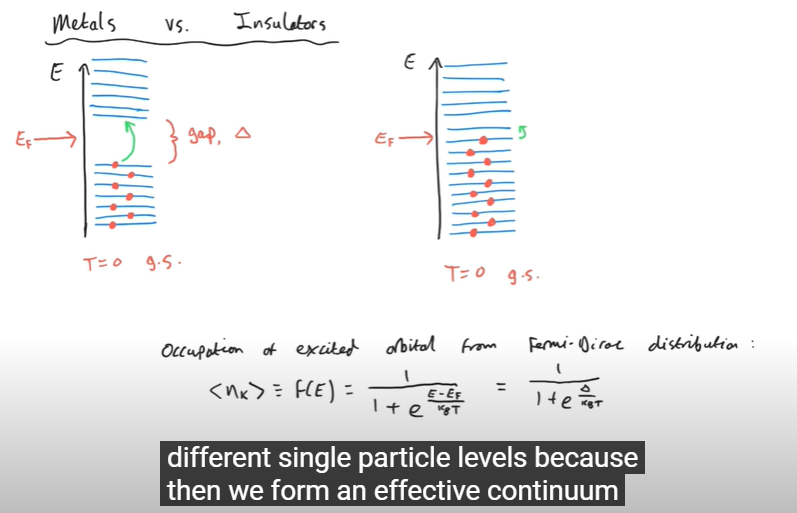 Metals vs. Insulators
E
E
E_F
gap, Δ
E_F
T=0 g.s.
T=0 g.s.
Occupation of excited orbital from Fermi-Dirac distribution :
<n_k> ≡ f(E) = 1 / (1 + e^((E-E_F)/(k_B T))) = 1 / (1 + e^(Δ/(k_B T)))
different single particle levels because
then we form an effective continuum